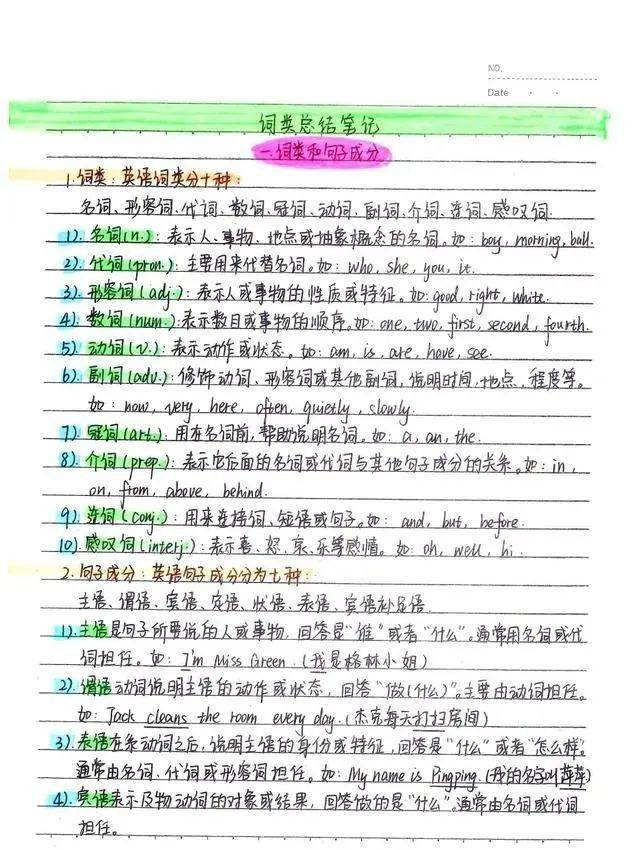 NO.
Date
词类总结笔记
一.词类和句子成分
1.词类:英语词类分十种:
名词、形容词、代词、数词、冠词、动词、副词、介词、连词、感叹词.
1).名词(n.):表示人、事物、地点或抽象概念的名词。如:boy,morning,ball.
2).代词(pron.):主要用来代替名词。如:who,she,you,it.
3).形容词(adj.):表示人或事物的性质或特征。如:good,right,white.
4).数词(num.):表示数目或事物的顺序。如:one,two,first,second,fourth.
5).动词(v.):表示动作或状态。如:am,is,are,have,see.
6).副词(adv.):修饰动词、形容词或其他副词,说明时间,地点,程度等。
如:now,very,here,often,quietly,slowly.
7).冠词(art.):用在名词前,帮助说明名词。如:a,an,the.
8).介词(prep.):表示它后面的名词或代词与其他句子成分的关系。如:in,
on,from,above,behind.
9).连词(conj.):用来连接词、短语或句子。如:and,but,before.
10).感叹词(interj.):表示喜、怒、哀、乐等感情。如:oh,well,hi.
2.句子成分:英语句子成分分为七种:
主语、谓语、宾语、定语、状语、表语、宾语补足语.
1).主语是句子所要说的人或事物,回答是“谁”或者“什么”。通常用名词或代
词担任。如:I'm Miss Green.(我是格林小姐)
2).谓语动词说明主语的动作或状态,回答“做(什么)”。主要由动词担任。
如:Jack cleans the room every day.(杰克每天打扫房间)
3).表语在系动词之后,说明主语的身份或特征,回答是“什么”或者“怎么样”。
通常由名词、代词或形容词担任。如:My name is Pingping.(我的名字叫萍萍)
4).宾语表示及物动词的对象或结果,回答做的是“什么”。通常由名词或代词
担任。